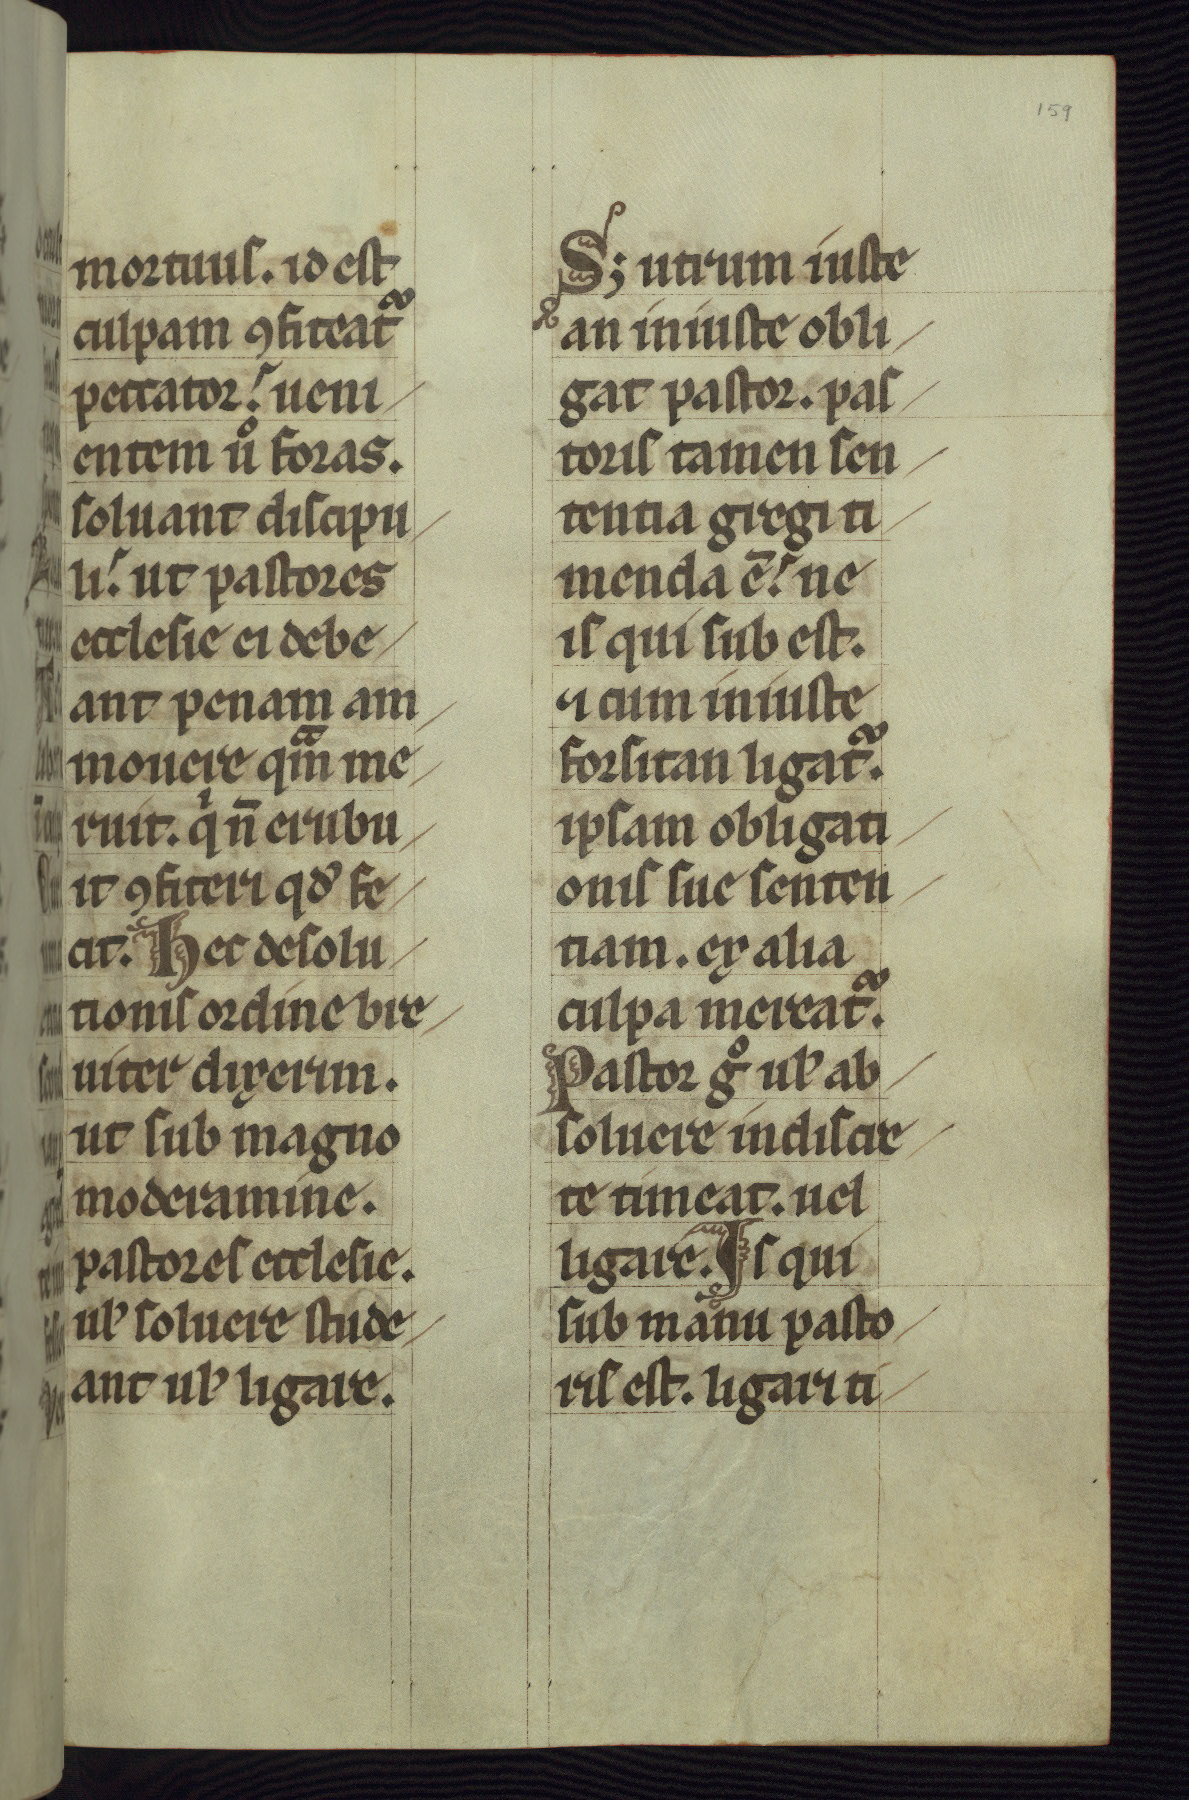 159
mortuus. id est
culpam ꝯfiteat᷑
peccator. ueni/
entem uͦ foras.
soluant discipu/
li. ut pastores
ecclesie ei debe/
ant penam am/
mouere qᵃm me/
ruit. qⁱ n̄ erubu/
it ꝯfiteri qd̕ fe/
cit. Hec de solu/
tionis ordine bre/
uiter dixerim.
ut sub magno
moderamine.
pastores ecclesie.
ul̕ soluere stude/
ant ul̕ ligare.
Sꝫ utrum iuste
an iniuste obli/
gat pastor. pas/
toris tamen sen/
tentia gregi ti/
menda ē. ne
is qui sub est.
⁊ cum iniuste
forsitan ligat᷑.
ipsam obligati/
onis sue senten/
tiam. ex alia
culpa mereat᷑.
Pastor gͦ ul̕ ab/
soluere indiscre/
te timeat. uel
ligare. Is qui
sub manu pasto/
ris est. ligari ti/